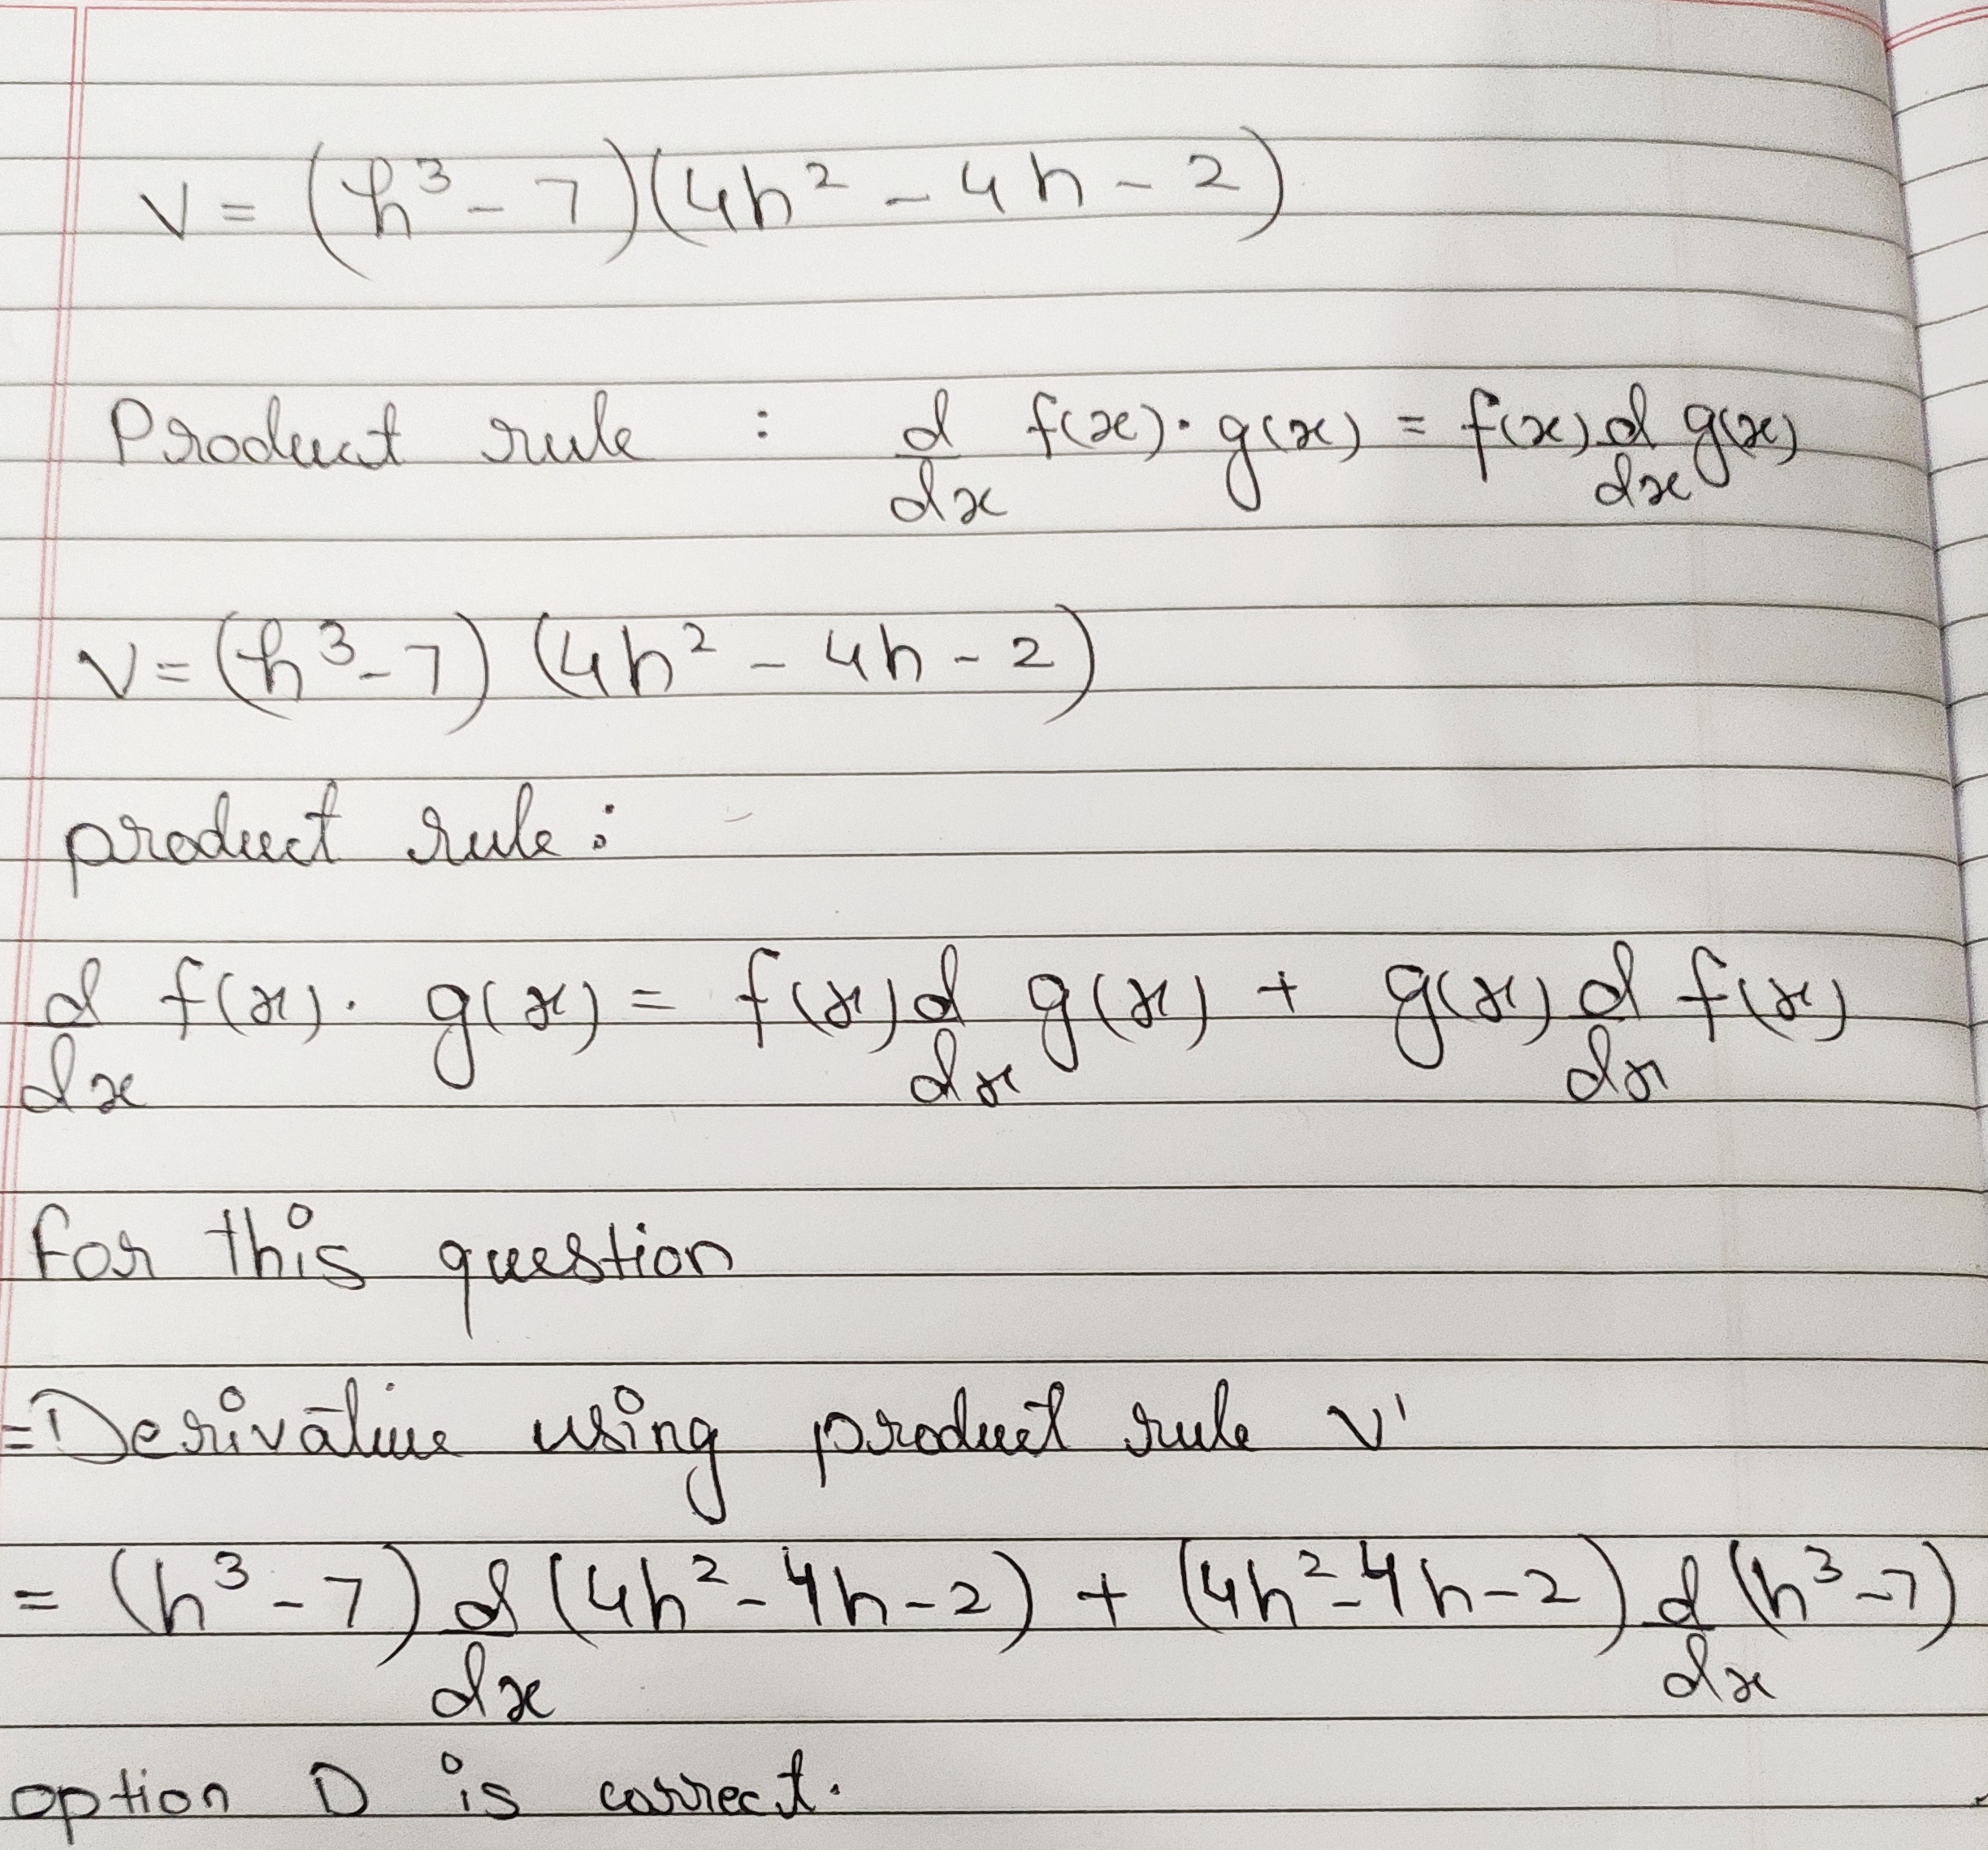 v = (h³ - 7)(4h² - 4h - 2)
Product rule : d/dx f(x) · g(x) = f(x) d/dx g(x)
v = (h³ - 7) (4h² - 4h - 2)
product rule :
d/dx f(x) · g(x) = f(x) d/dx g(x) + g(x) d/dx f(x)
for this question
= Derivative using product rule v'
= (h³ - 7) d/dx (4h² - 4h - 2) + (4h² - 4h - 2) d/dx (h³ - 7)
option D is correct.